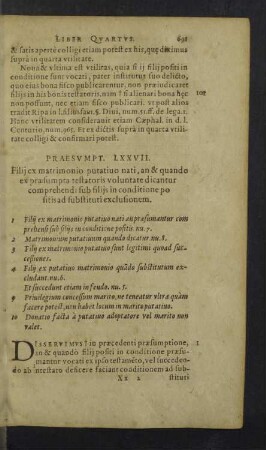 LIBER QVARTVS. 691
& satis aperte colligi etiam potest ex his, quę diximus
suprà in quarta vtilitate.
Nona & vltima est vtilitas, quia si ij filij positi in
conditione sunt vocati, pater instituitur suo delicto,
quo eius bona fisco publicarentur, non prǽiudicaret
filijs in his bonis testatoris, nam si alienari bona hęc
non possunt, nec etiam fisco publicari. vt post alios
tradit Ripa in l.filiusfam. §. Diui, num.51.ff. de lega.1.
Hanc vtilitatem considerauit etiam Cęphal. in d. l.
Centurio, num.365. Et ex dictis suprà in quarta vtili
tate colligi & confirmari potest.
108
PRAESVMPT. LXXVII.
Filij ex matrimonio putatiuo nati, an & quando
ex præsumpta testatoris voluntate dicantur
comprehendi sub filijs in conditione po
sitis ad substituti exclusionem.
1 Filij ex matrimonio putatiuo nati an præsumantur com
prehensi sub filijs in conditione positis. nu.7.
2 Matrimonium putatiuum quando dicatur nu.5.
3 Filij ex matrimonio putatiuo sunt legitimi quoad suc-
cessiones.
4 Filij ex putatiuo matrimonio quãdo substitutum ex-
cludant. nu.6.
Et succedunt etiam in feudo. nu.5.
9 Priuilegium concessum marito, ne teneatur vltra quàm
facere potest, an habet locum in marito putatiuo.
10 Donatio facta à putatiuo adoptatore vel marito non
valet.
DISSERVIMVS in præcedenti præsumptione,
an & quando filij positi in conditione præsu-
mantur vocati ex ipso testamẽto, vel succeden
do ab intestato deficere faciant conditionem ad sub
1
Xx 2 stituti